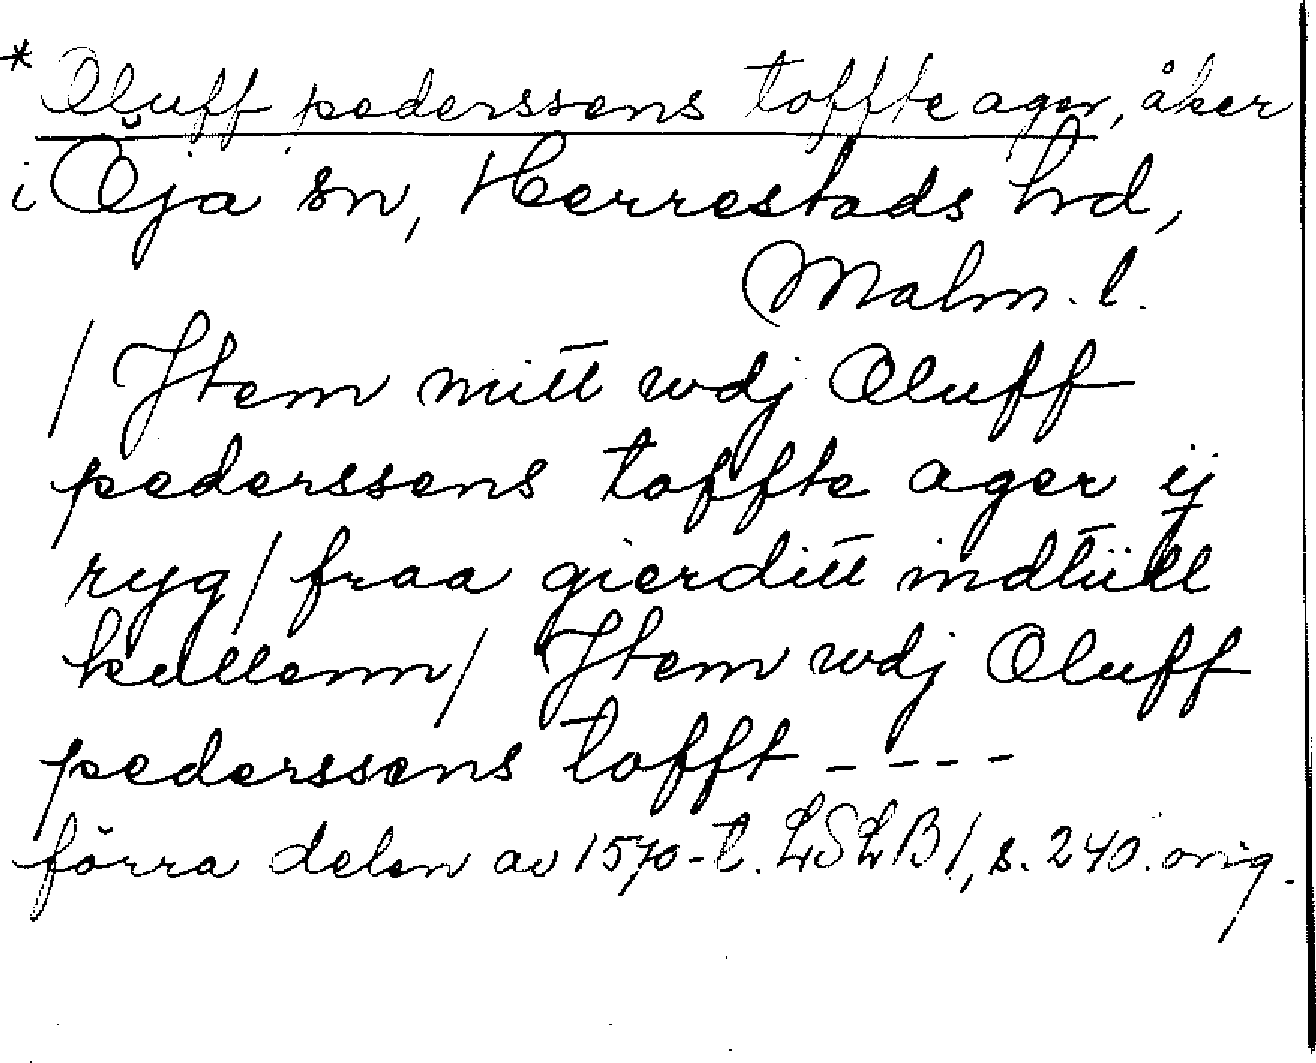 * Oluff pederssens toffte ager, åker
i Öja sn, Herrestads hd,
Malm. l.
/ Jtem mitt wdj Oluff
pederssens toffte ager ij
ryg / fraa gierditt indtiill
kellenn / Jtem wdj Oluff
pederssens tofft ----
förra delen av 1570-t. LSLB 1, s. 240. orig.